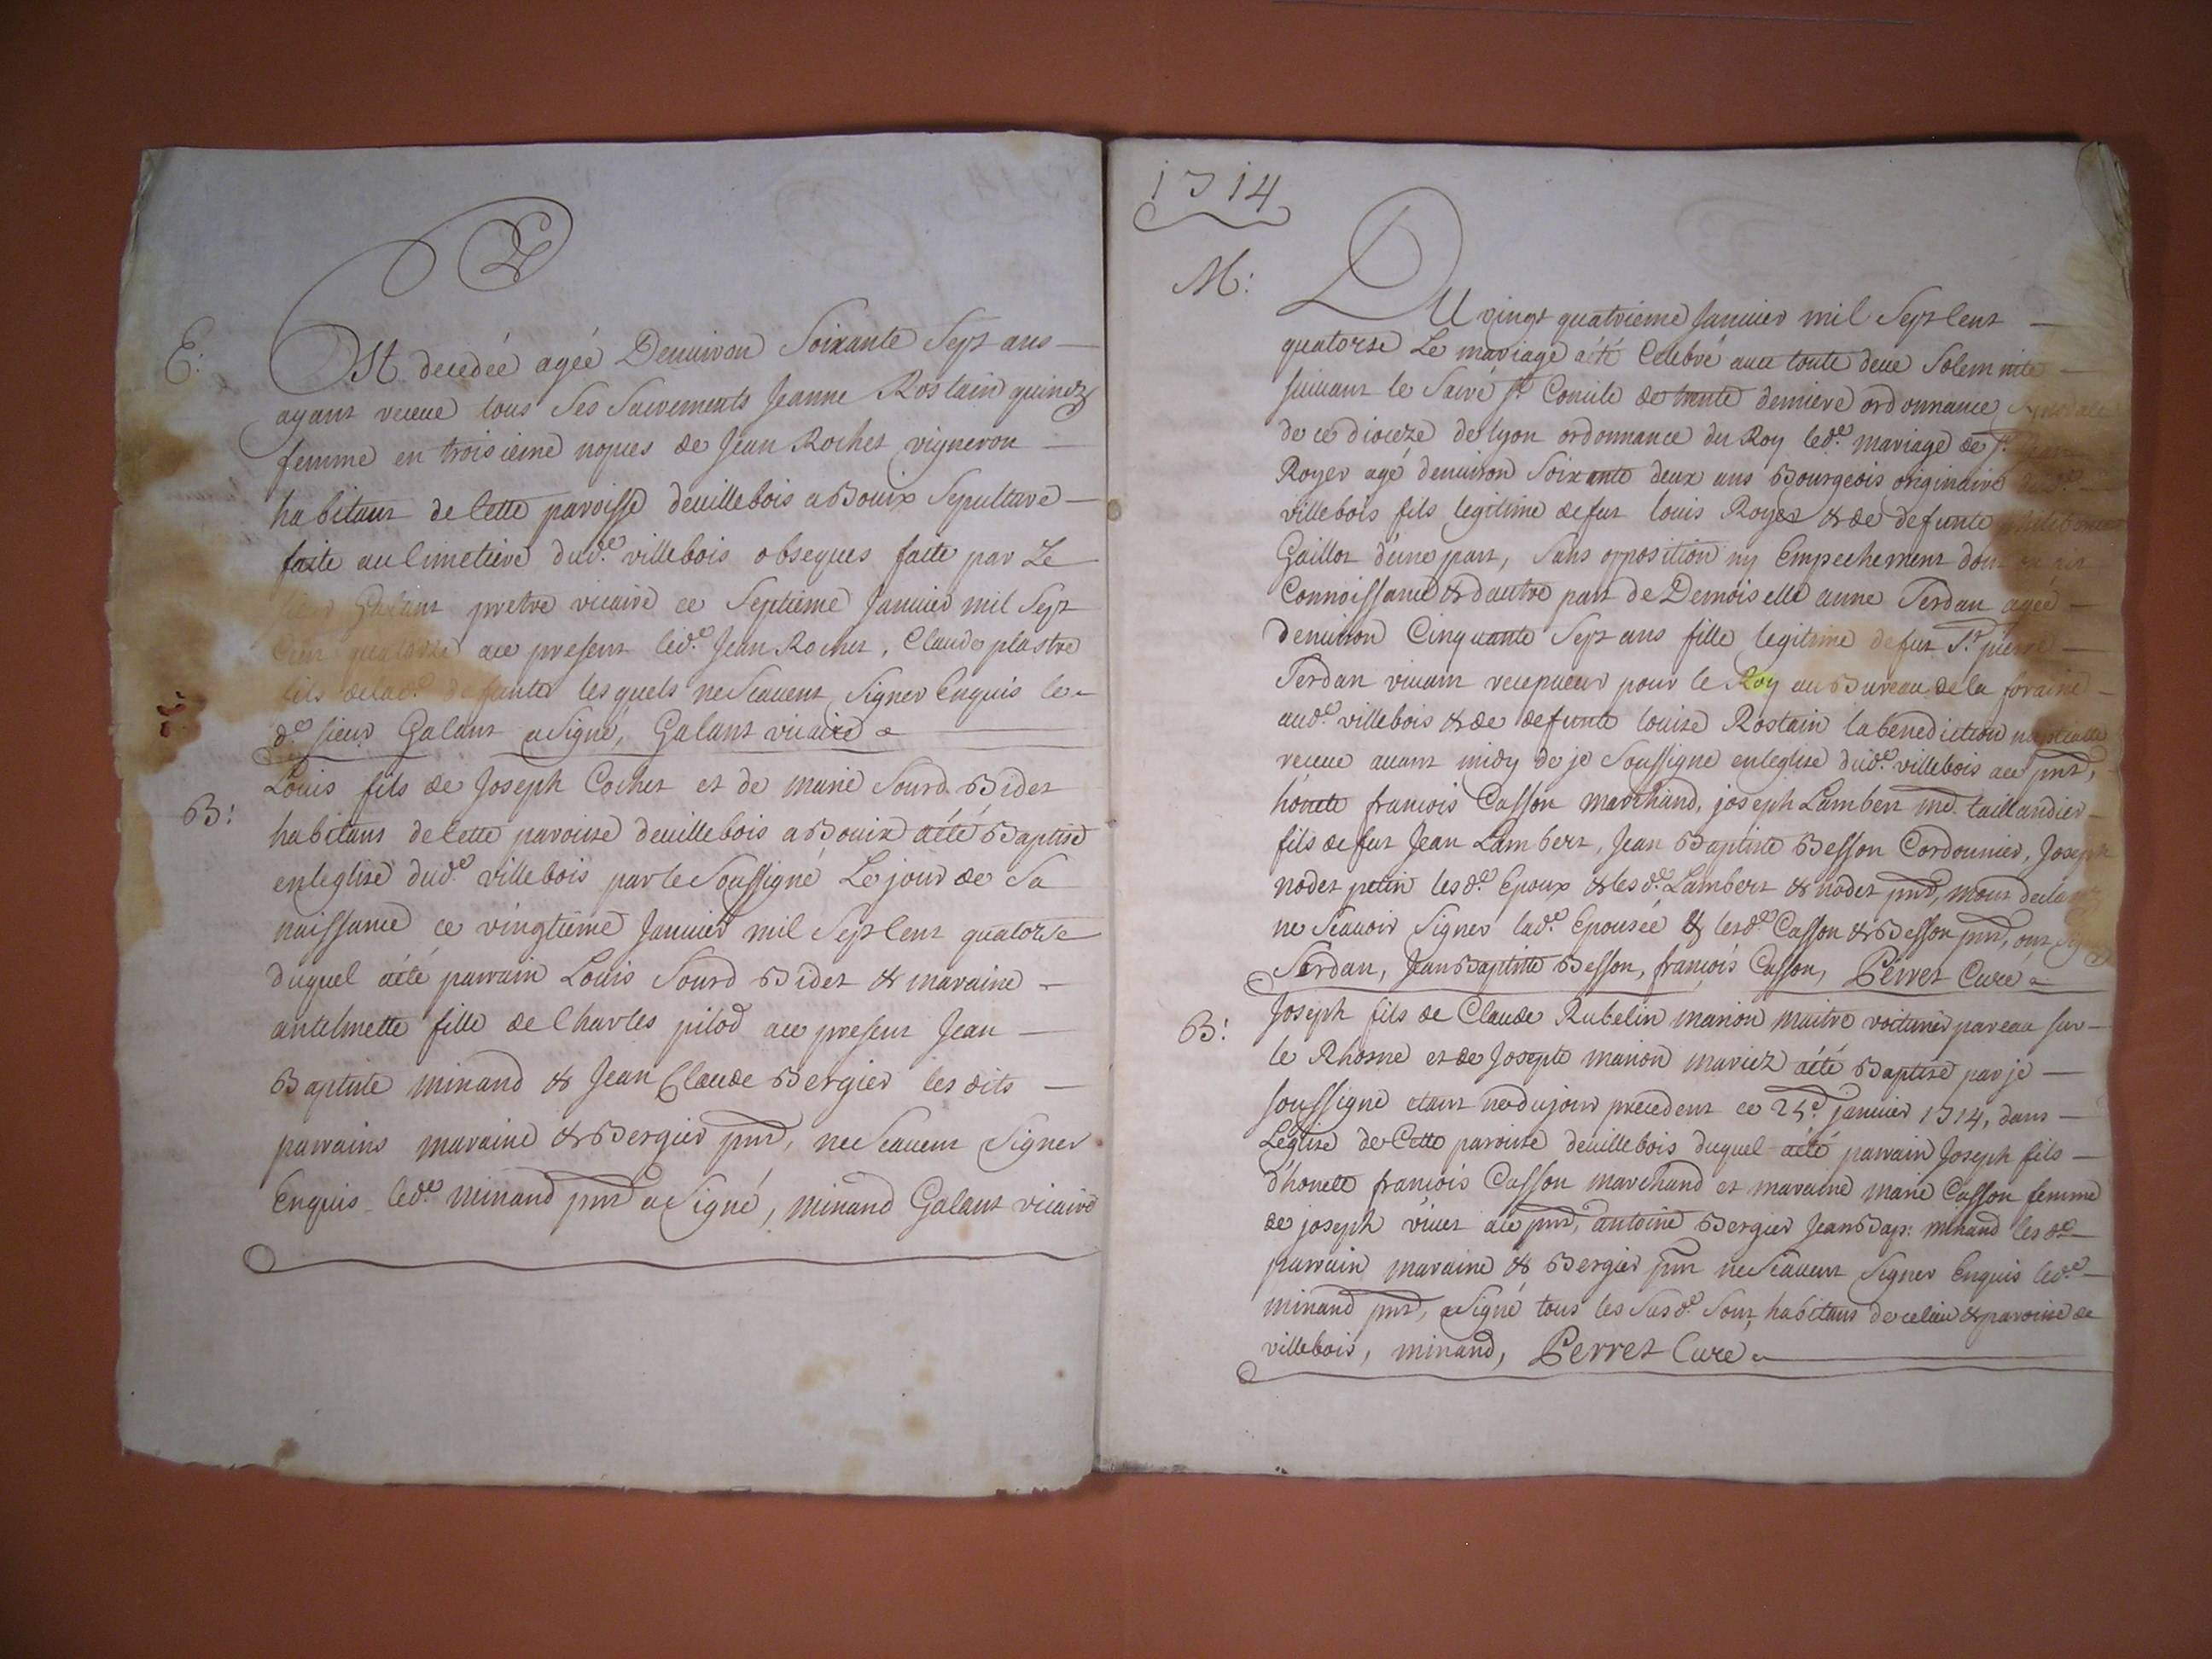 E:
Est decedée agée Denuiron Soixante Sept ans
ayant receue tous Ses Sacrements Jeanne Rostain quinez
femme en troisieme nopces de Jean Rochet vigneron
habitant de Cette paroisse deuillebois a Bouix Sepultare
faite au Cimetiere dud.e villebois obseques faite par Le
Galant pretre vicaire ce Septieme Januier mil Sept
Cent quatorze ace present led.e Jean Rochet, Claude plastre
fils de lad.e defunte les quels ne Scauent Signer Enquis le
d.e sieur Galant a Signe, Galant vicaire
B:
Louis fils de Joseph Cochet et de marie Sourd Bidet
habitans de Cette paroise deuillebois a Bouix aété Baptisé
en leglise dud.e villebois par le Soussigné Le jour de Sa
naissance ce vingtieme Januier mil Sept Cent quatorse
duquel aété parrain Louis Sourd Bidet & maraine
antelmette fille de Charles pilod ace present Jean
Baptiste minand & Jean Claude Bergier les dits
parrains maraine & Bergier pnt, ne Scauent Signer
Enquis led.e minand pnt a Signé, minand Galant vicaire
1714
M:
DU vingt quatrieme Januier mil Sept Cent
quatorse Le mariage aété Celebré auec toute deue Solemnite
suiuant le Sacré st Concile de trente derniere ordonnance Synodale
de ce dioceze de lyon ordonnance du Roy led.e mariage de Sr
Royer agé denuiron Soixante deux ans Bourgeois originaire dud.e
villebois fils legitime de fut louis Royer & de defunte
Gaillot d'une part, Sans opposition ny Empechement dont
Connoissance & dautre part de Demoiselle anne Serdan agée
denuiron Cinquante Sept ans fille legitime de fut Sr pierre
Serdan viuant recepueur pour le Roy au Bureau de la foraine
aud.e villebois & de defunte louise Rostain la benediction nuptialle
receue auant midy de je Soussigne en leglise dud.e villebois ace pnt,
honete francois Casson marchand, joseph Lambert md. taillandier
fils de fut Jean Lambert, Jean Baptiste Besson Cordounier, Joseph
nodet petin les d.e Epoux & les d.e Lambert & nodet pnt, mont declaré
ne Scauoir Signer lad.e Epousée & lesd.e Casson & Besson pnt, ont Signé
Serdan, Jean Baptiste Besson, francois Casson, Perret Curé
B:
Joseph fils de Claude Rubelin marion maitre voiturier par eau sur
le Rhosne et de Josepte marion mariez aété Baptisé par je
soussigne etant né du jour precedent ce 25.e januier 1714, dans
Leglise de Cette paroisse deuillebois duquel aété parrain Joseph fils
d'honete francois Casson marchand et maraine marie Casson femme
de joseph viuet ace pnt, antoine Bergier Jean Bap: minand les d.e
parrain maraine & Bergier pnt ne Scauent Signer Enquis led.e
minand pnt, a Signé tous les Susd.e Sont habitans de ce lieu & paroisse de
villebois, minand, Perret Curé